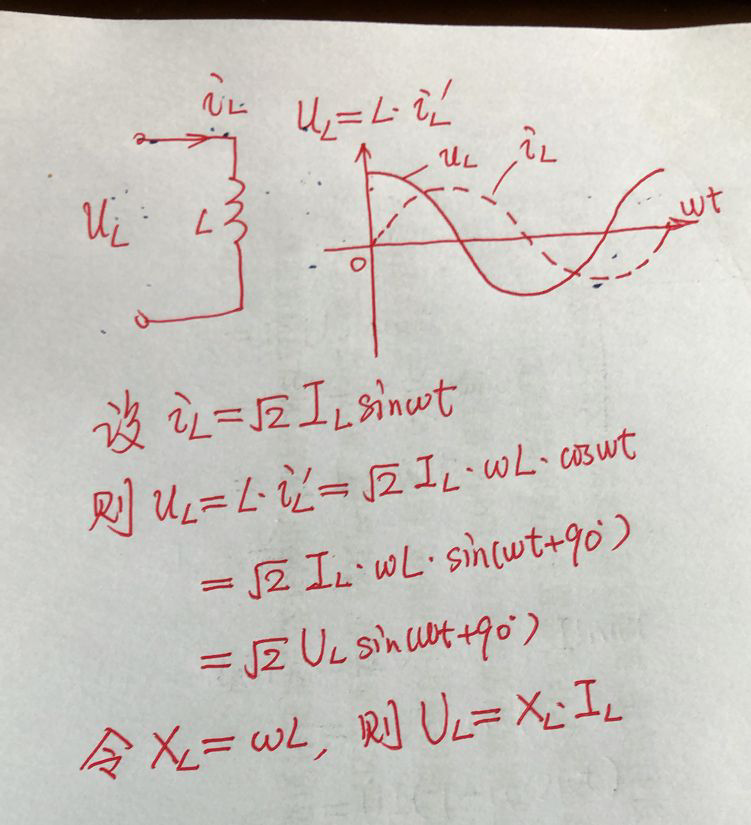 i_L
u_L = L·i_L′
u_L
i_L
u_L
L
ωt
0
设 i_L = √2 I_L sinωt
则 u_L = L·i_L′ = √2 I_L·ωL·cosωt
= √2 I_L·ωL·sin(ωt+90°)
= √2 U_L sin(ωt+90°)
令 X_L = ωL, 则 U_L = X_L·I_L